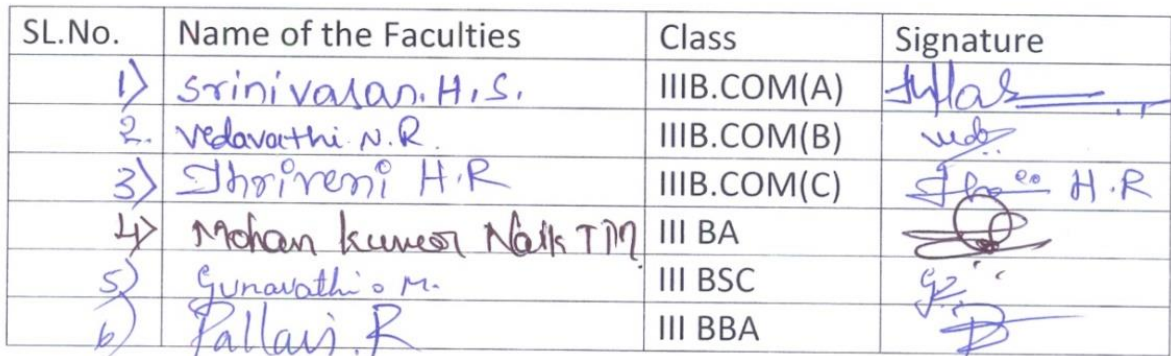 SL.No. Name of the Faculties Class Signature
1) Srinivasan. H.S. IIIB.COM(A)
2. Vedavathi N.R. IIIB.COM(B)
3) Thriveni H.R IIIB.COM(C) H.R
4) Mohan Kumar Naik TM III BA
5) Gunavathi. M. III BSC
6) Pallavi. R III BBA